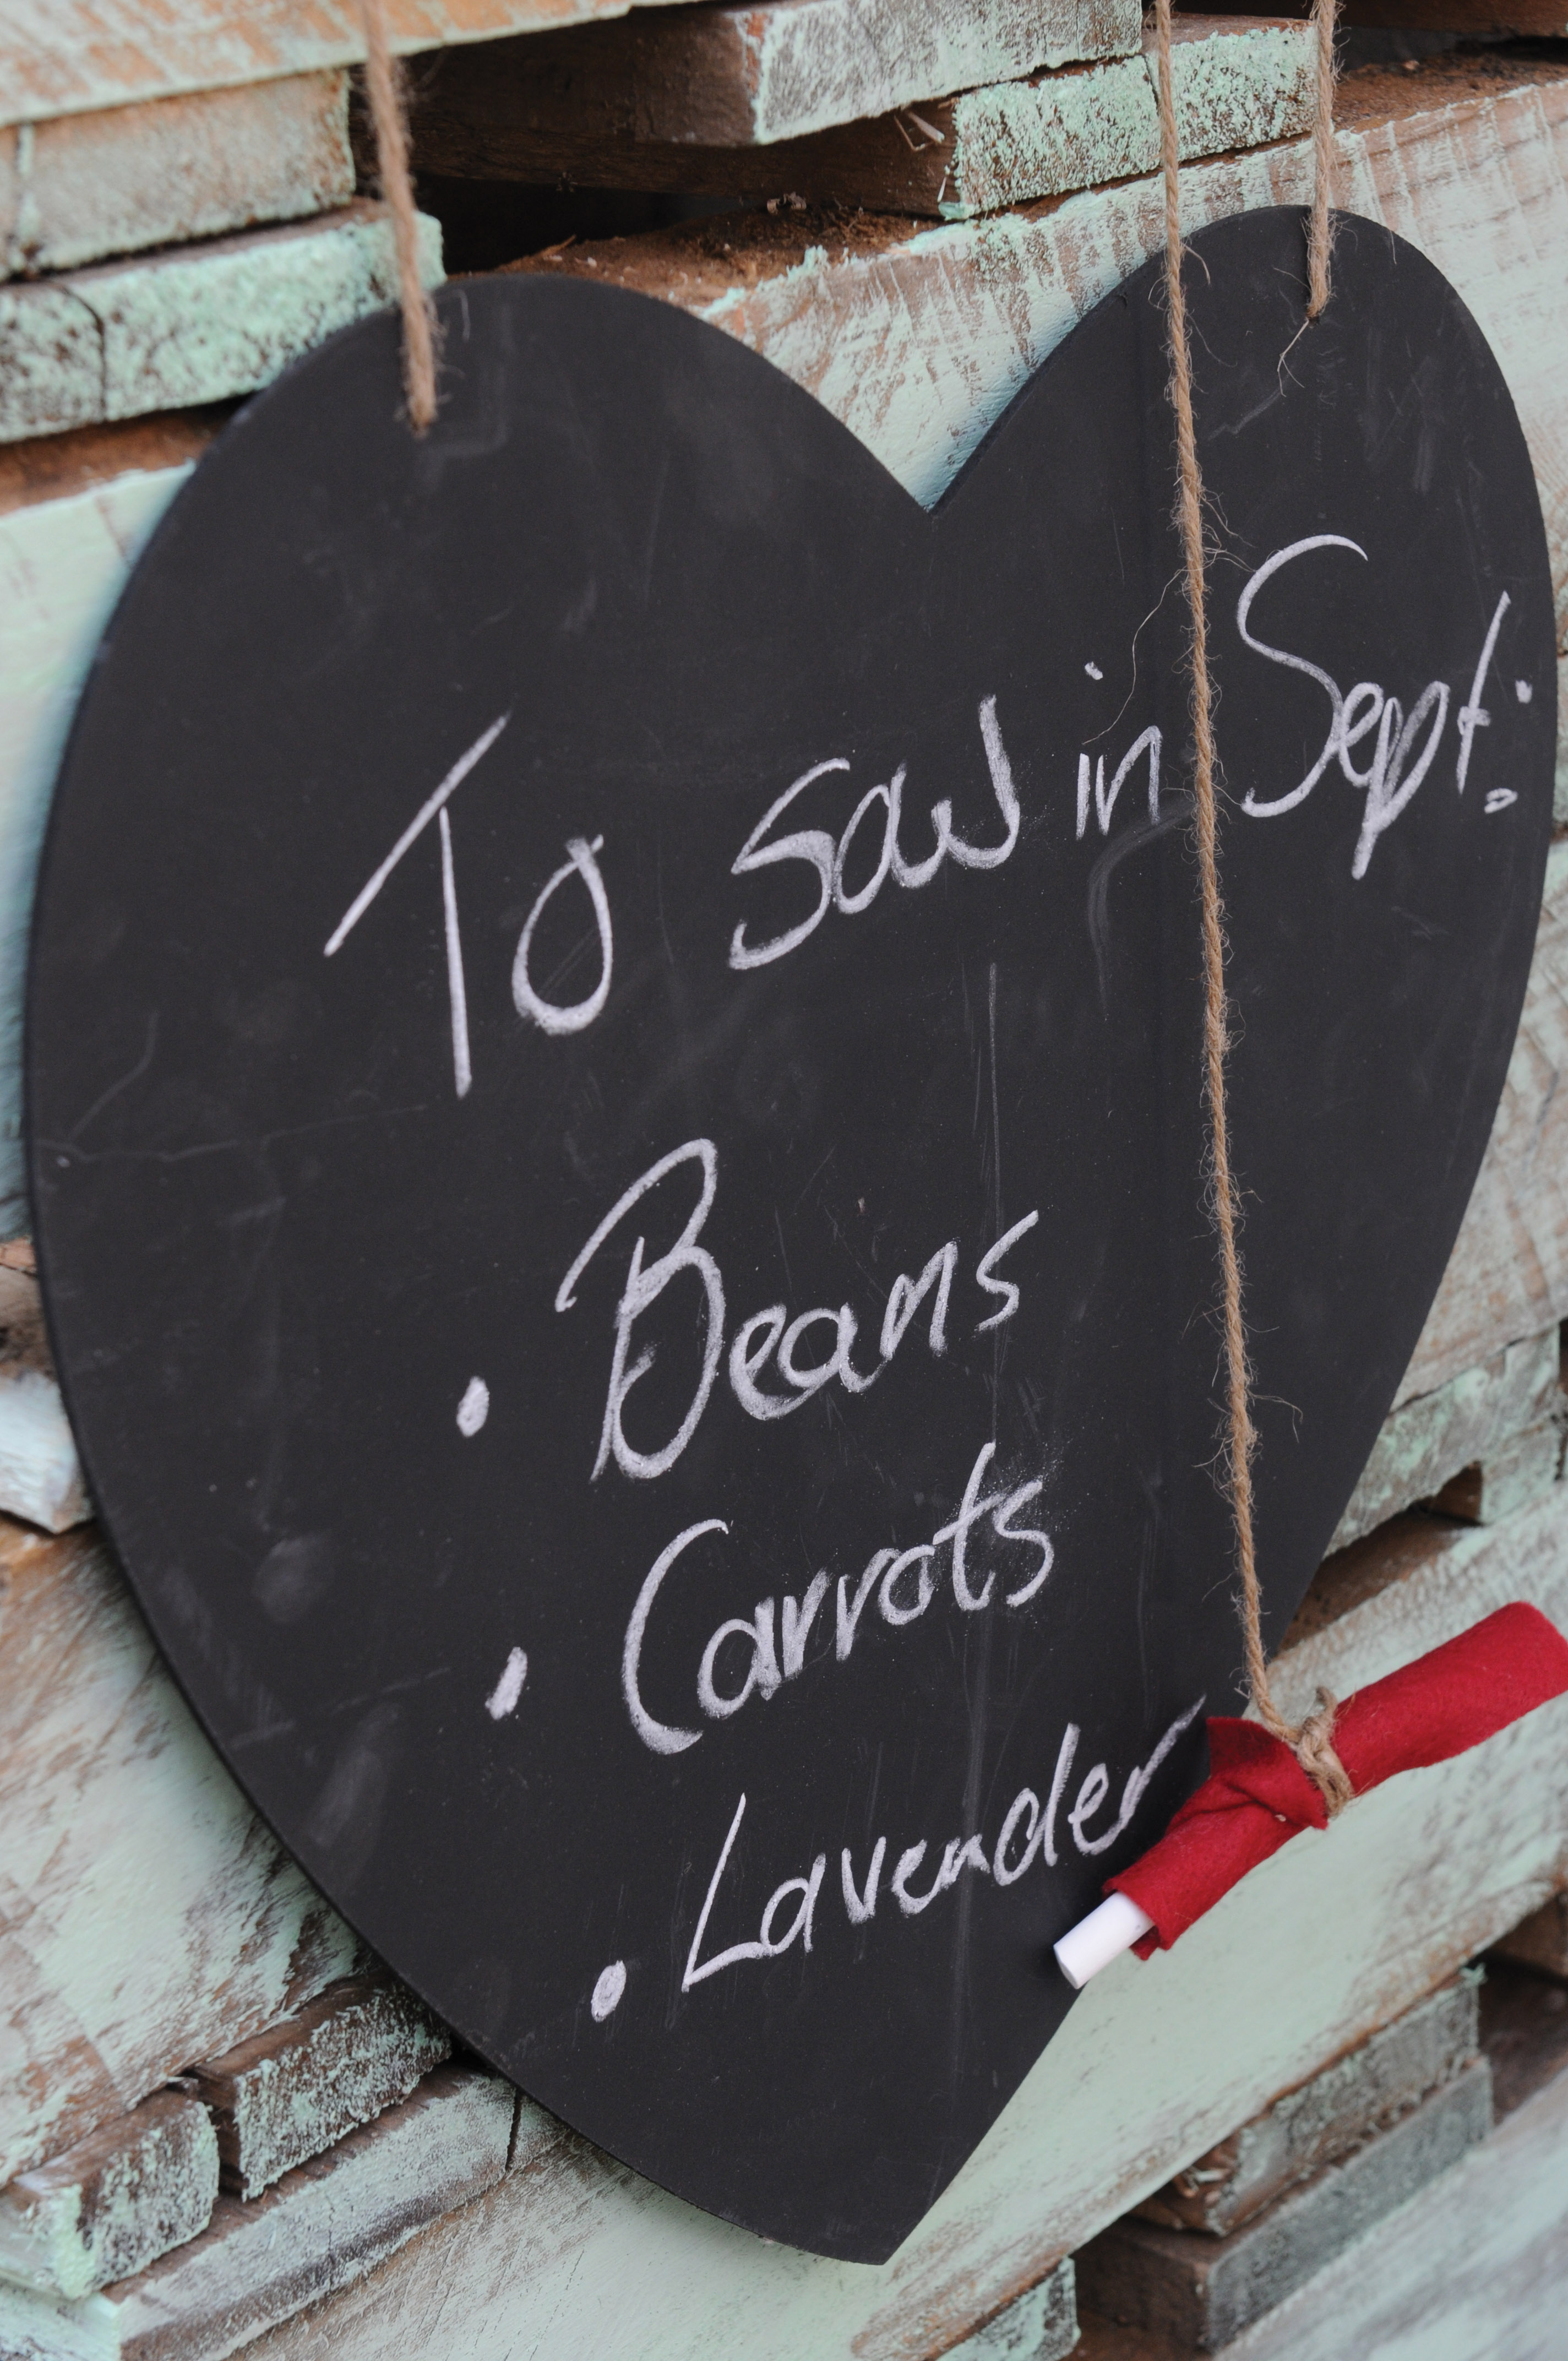 To saw in Sept:
• Beans
• Carrots
• Lavender